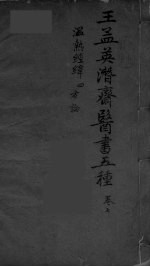 王孟英潛齋醫書五種
溫熱經緯